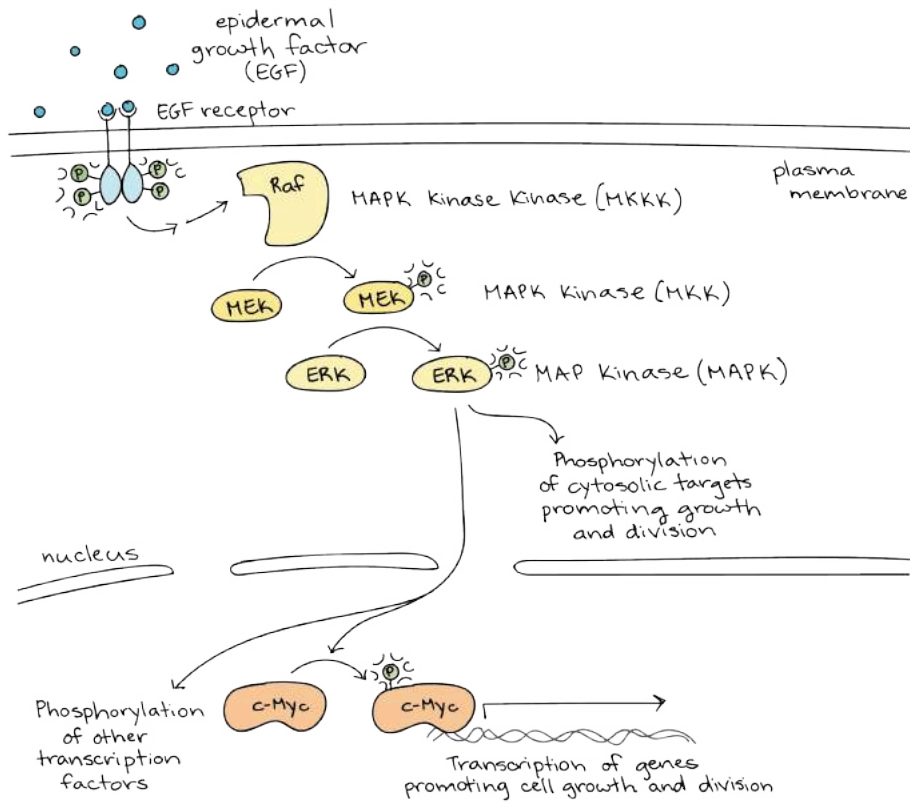 epidermal
growth factor
(EGF)
EGF receptor
plasma
membrane
P
P
P
P
Raf
MAPK Kinase Kinase (MKKK)
MEK
MEK
P
MAPK Kinase (MKK)
ERK
ERK
P
MAP Kinase (MAPK)
Phosphorylation
of cytosolic targets
promoting growth
and division
nucleus
P
c-Myc
c-Myc
Phosphorylation
of other
transcription
factors
Transcription of genes
promoting cell growth and division